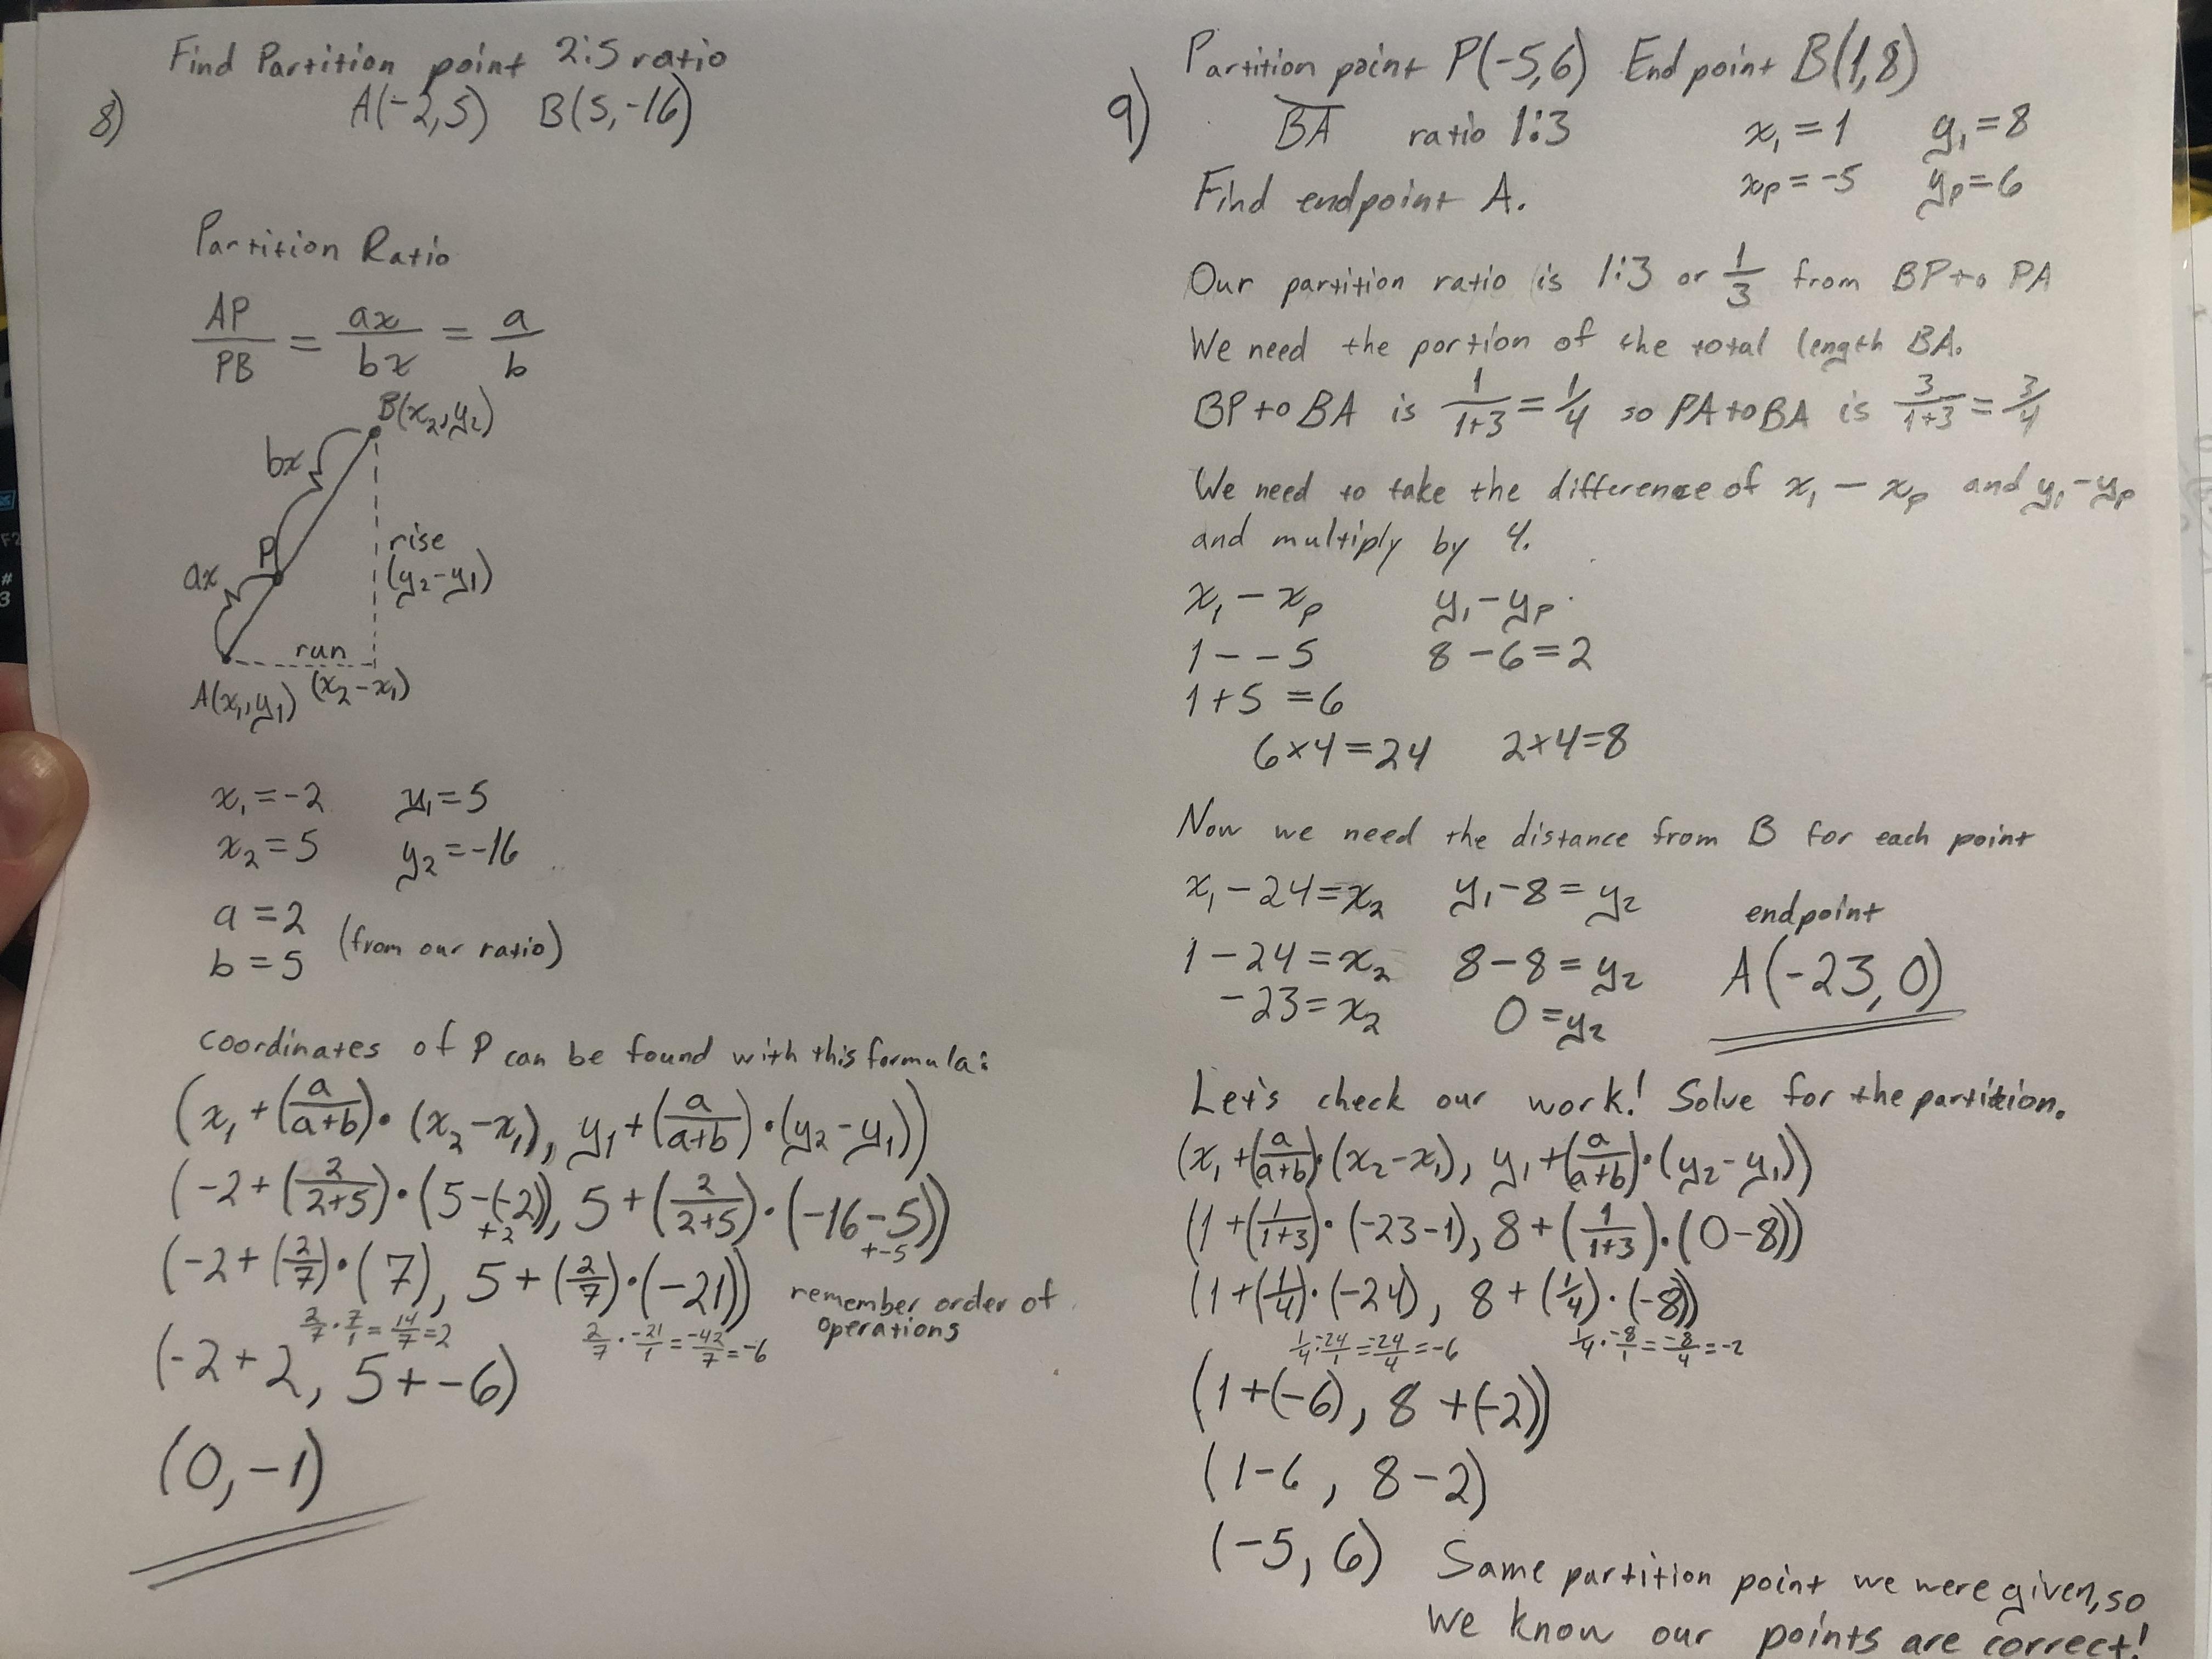 Find Partition point 2:5 ratio
8)
A(-2,5) B(5,-16)
Partition Ratio
AP/PB = ax/bx = a/b
B(x₂,y₂)
bx
P
rise
(y₂-y₁)
ax
run
A(x₁,y₁) (x₂-x₁)
x₁=-2 y₁=5
x₂=5 y₂=-16
a=2
b=5
(from our ratio)
coordinates of P can be found with this formula:
(x₁+(a/a+b)•(x₂-x₁), y₁+(a/a+b)•(y₂-y₁))
(-2+(2/2+5)•(5-(-2)), 5+(2/2+5)•(-16-5))
+2 +-5
(-2+(2/7)•(7), 5+(2/7)•(-21))
remember order of
operations
2/7•7/1=14/7=2 2/7•-21/1=-42/7=-6
(-2+2, 5+-6)
(0,-1)
Partition point P(-5,6) Endpoint B(1,8)
9)
BA ratio 1:3 x₁=1 y₁=8
xp=-5 yp=6
Find endpoint A.
Our partition ratio is 1:3 or 1/3 from BP to PA
We need the portion of the total length BA.
BP to BA is 1/1+3=1/4 so PA to BA is 3/1+3=3/4
We need to take the difference of x₁-xp and y₁-yp
and multiply by 4.
x₁-xp y₁-yp
1--5 8-6=2
1+5=6
6×4=24 2×4=8
Now we need the distance from B for each point
x₁-24=x₂ y₁-8=y₂
endpoint
1-24=x₂ 8-8=y₂ A(-23,0)
-23=x₂ 0=y₂
Let's check our work! Solve for the partition.
(x₁+(a/a+b)•(x₂-x₁), y₁+(a/a+b)•(y₂-y₁))
(1+(1/1+3)•(-23-1), 8+(1/1+3)•(0-8))
(1+(1/4)•(-24), 8+(1/4)•(-8))
1/4•-24/1=-24/4=-6 1/4•-8/1=-8/4=-2
(1+(-6), 8+(-2))
(1-6, 8-2)
(-5,6) Same partition point we were given, so
we know our points are correct!
F2
#
3